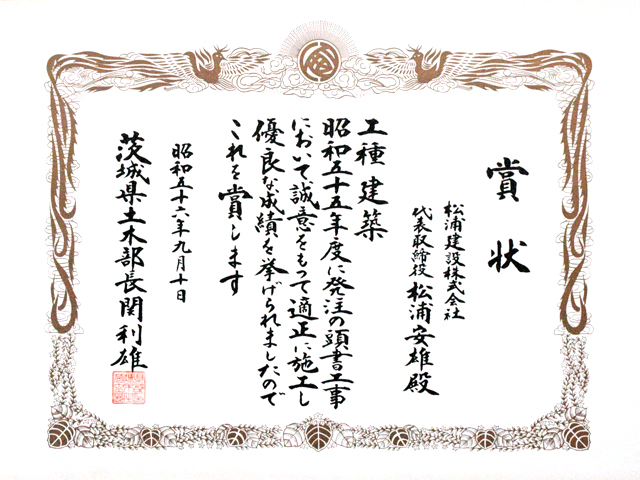 賞状
松浦建設株式会社
代表取締役 松浦安雄殿
工種 建築
昭和五十五年度に発注の頭書工事
において誠意をもって適正に施工し
優良な成績を挙げられましたので
これを賞します
昭和五十六年九月十日
茨城県土木部長 関利雄